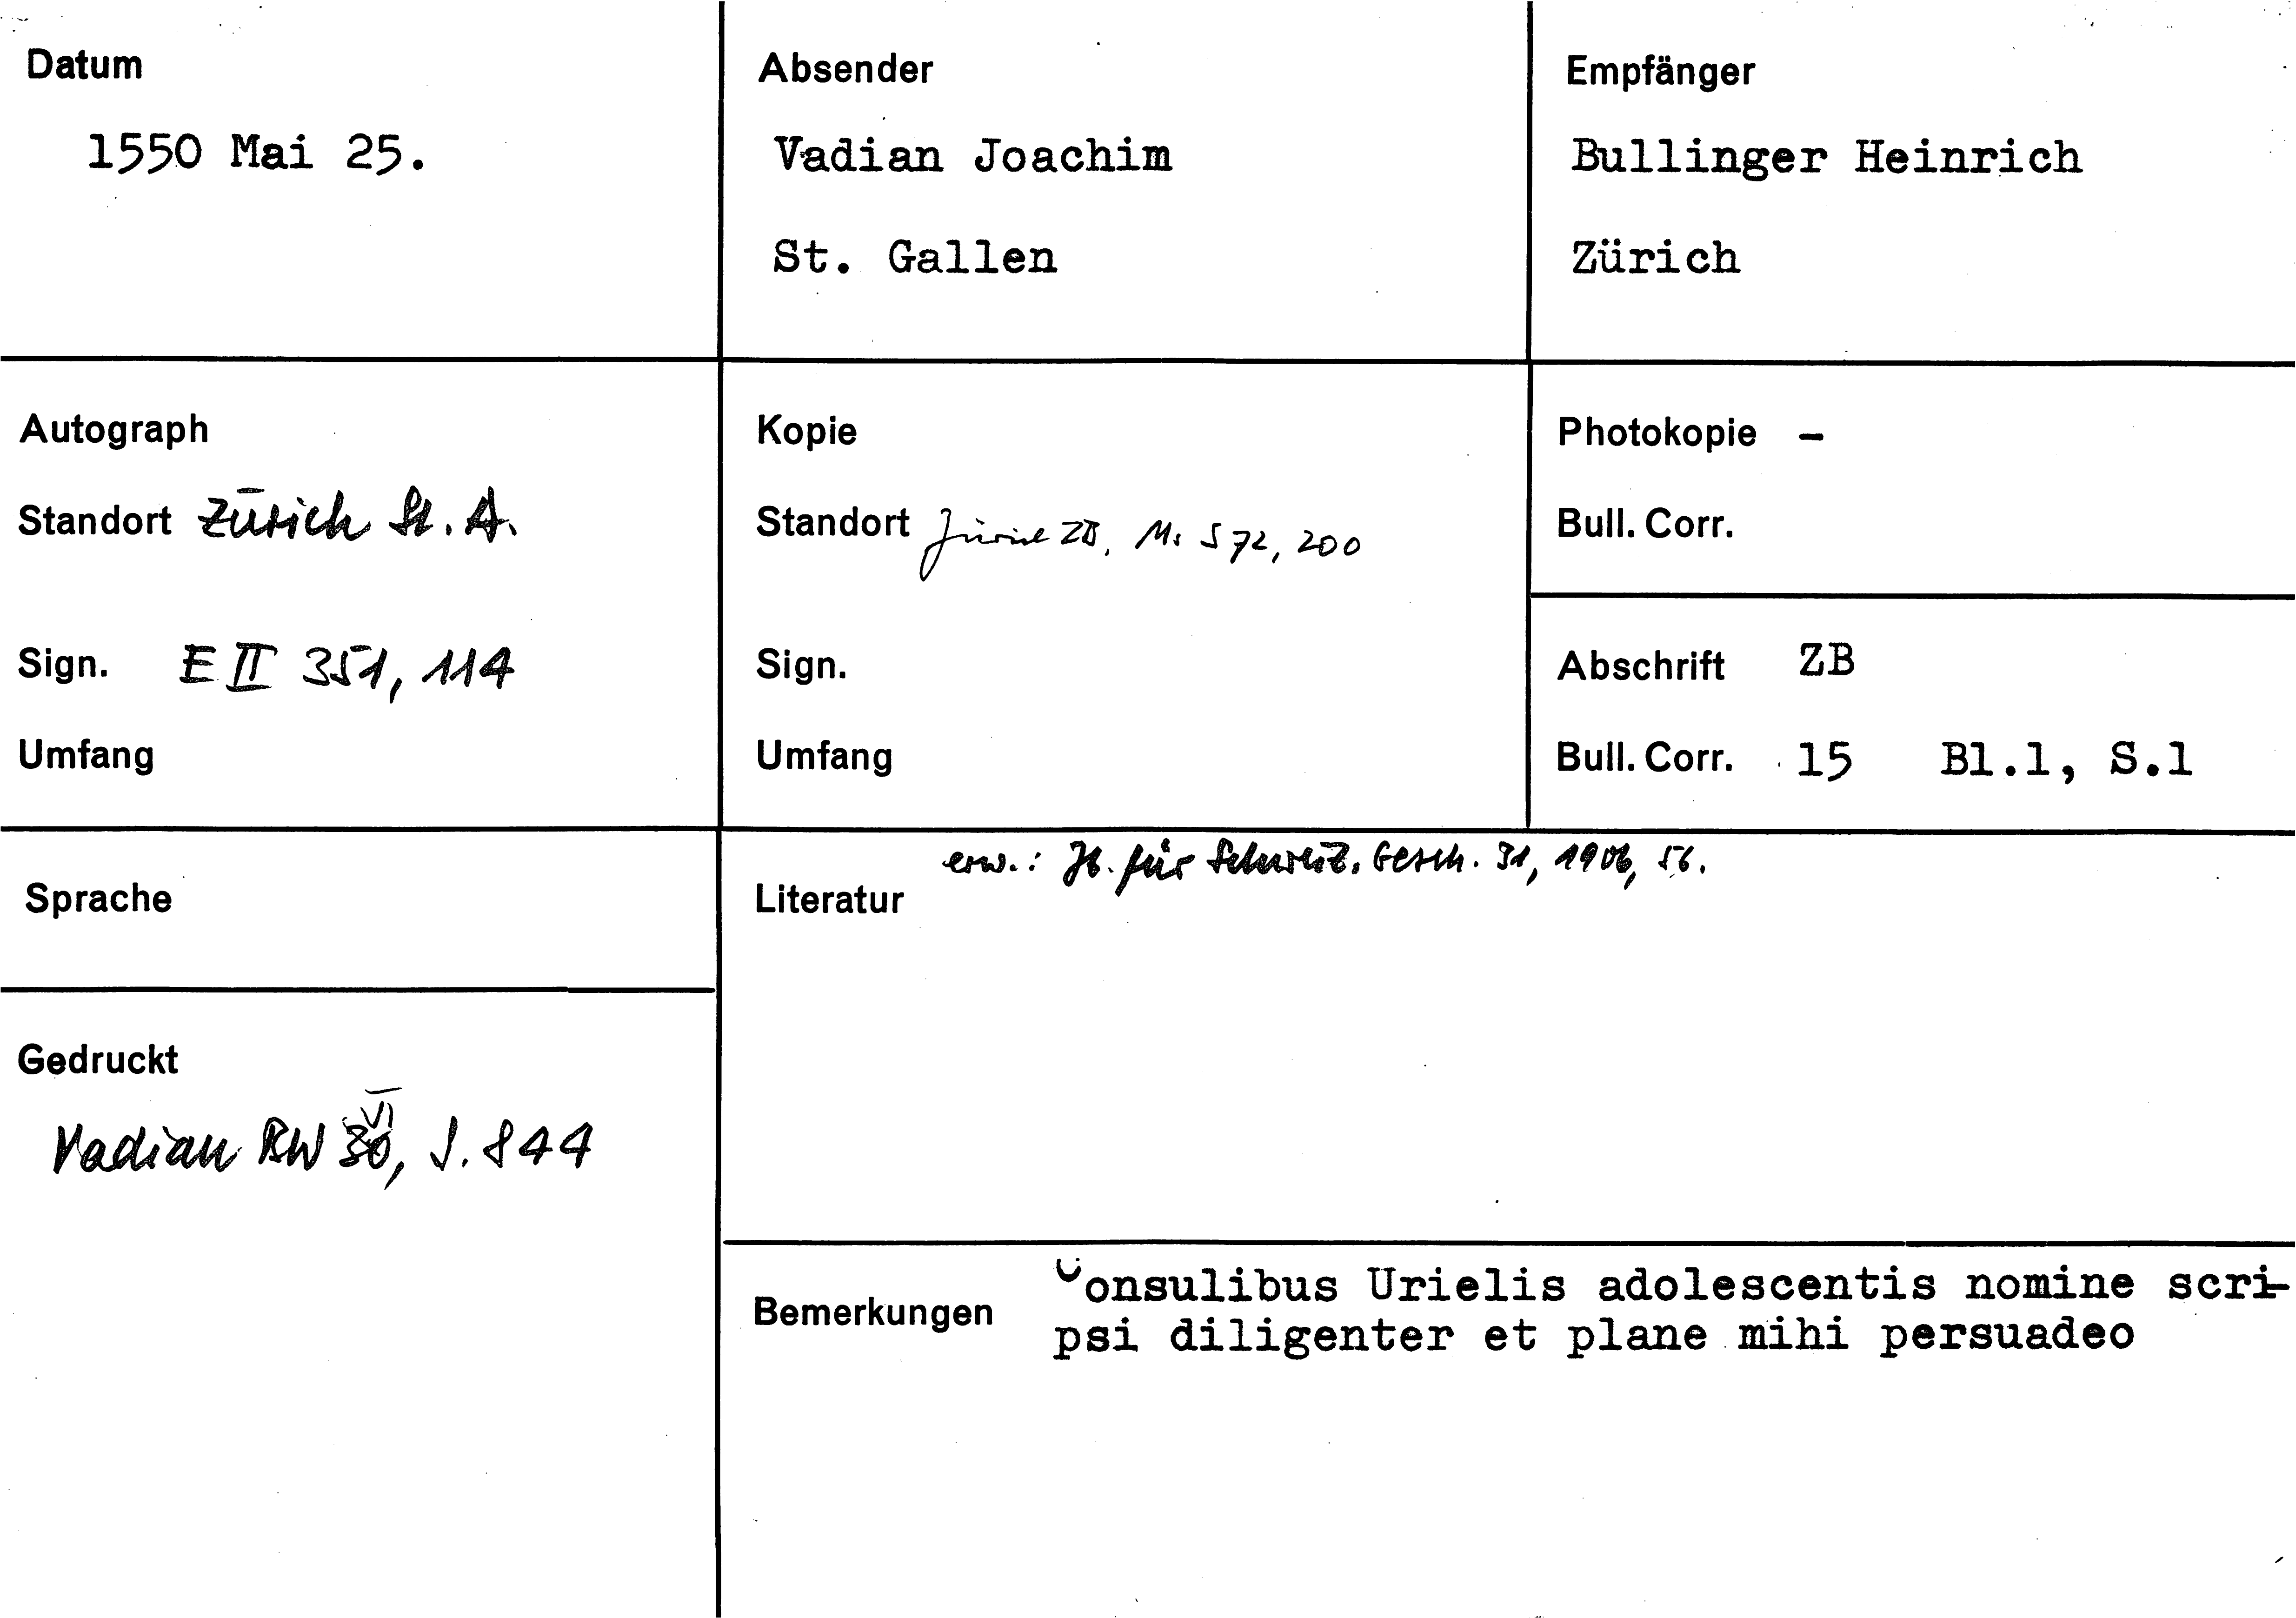 Datum
1550 Mai 25.
Absender
Vadian Joachim
St. Gallen
Empfänger
Bullinger Heinrich
Zürich
Autograph
Standort Zürich St. A.
Sign. E II 351, 114
Umfang
Kopie
Standort Zürich ZB, Ms S 72, 200
Sign.
Umfang
Photokopie –
Bull. Corr.
Abschrift ZB
Bull. Corr. 15 Bl.1, S.1
Sprache
Gedruckt
Vadian BW VI, S. 844
Literatur erw.: Jb. für Schweiz. Gesch. 31, 1906, 56.
Bemerkungen
Consulibus Urielis adolescentis nomine scri-
psi diligenter et plane mihi persuadeo